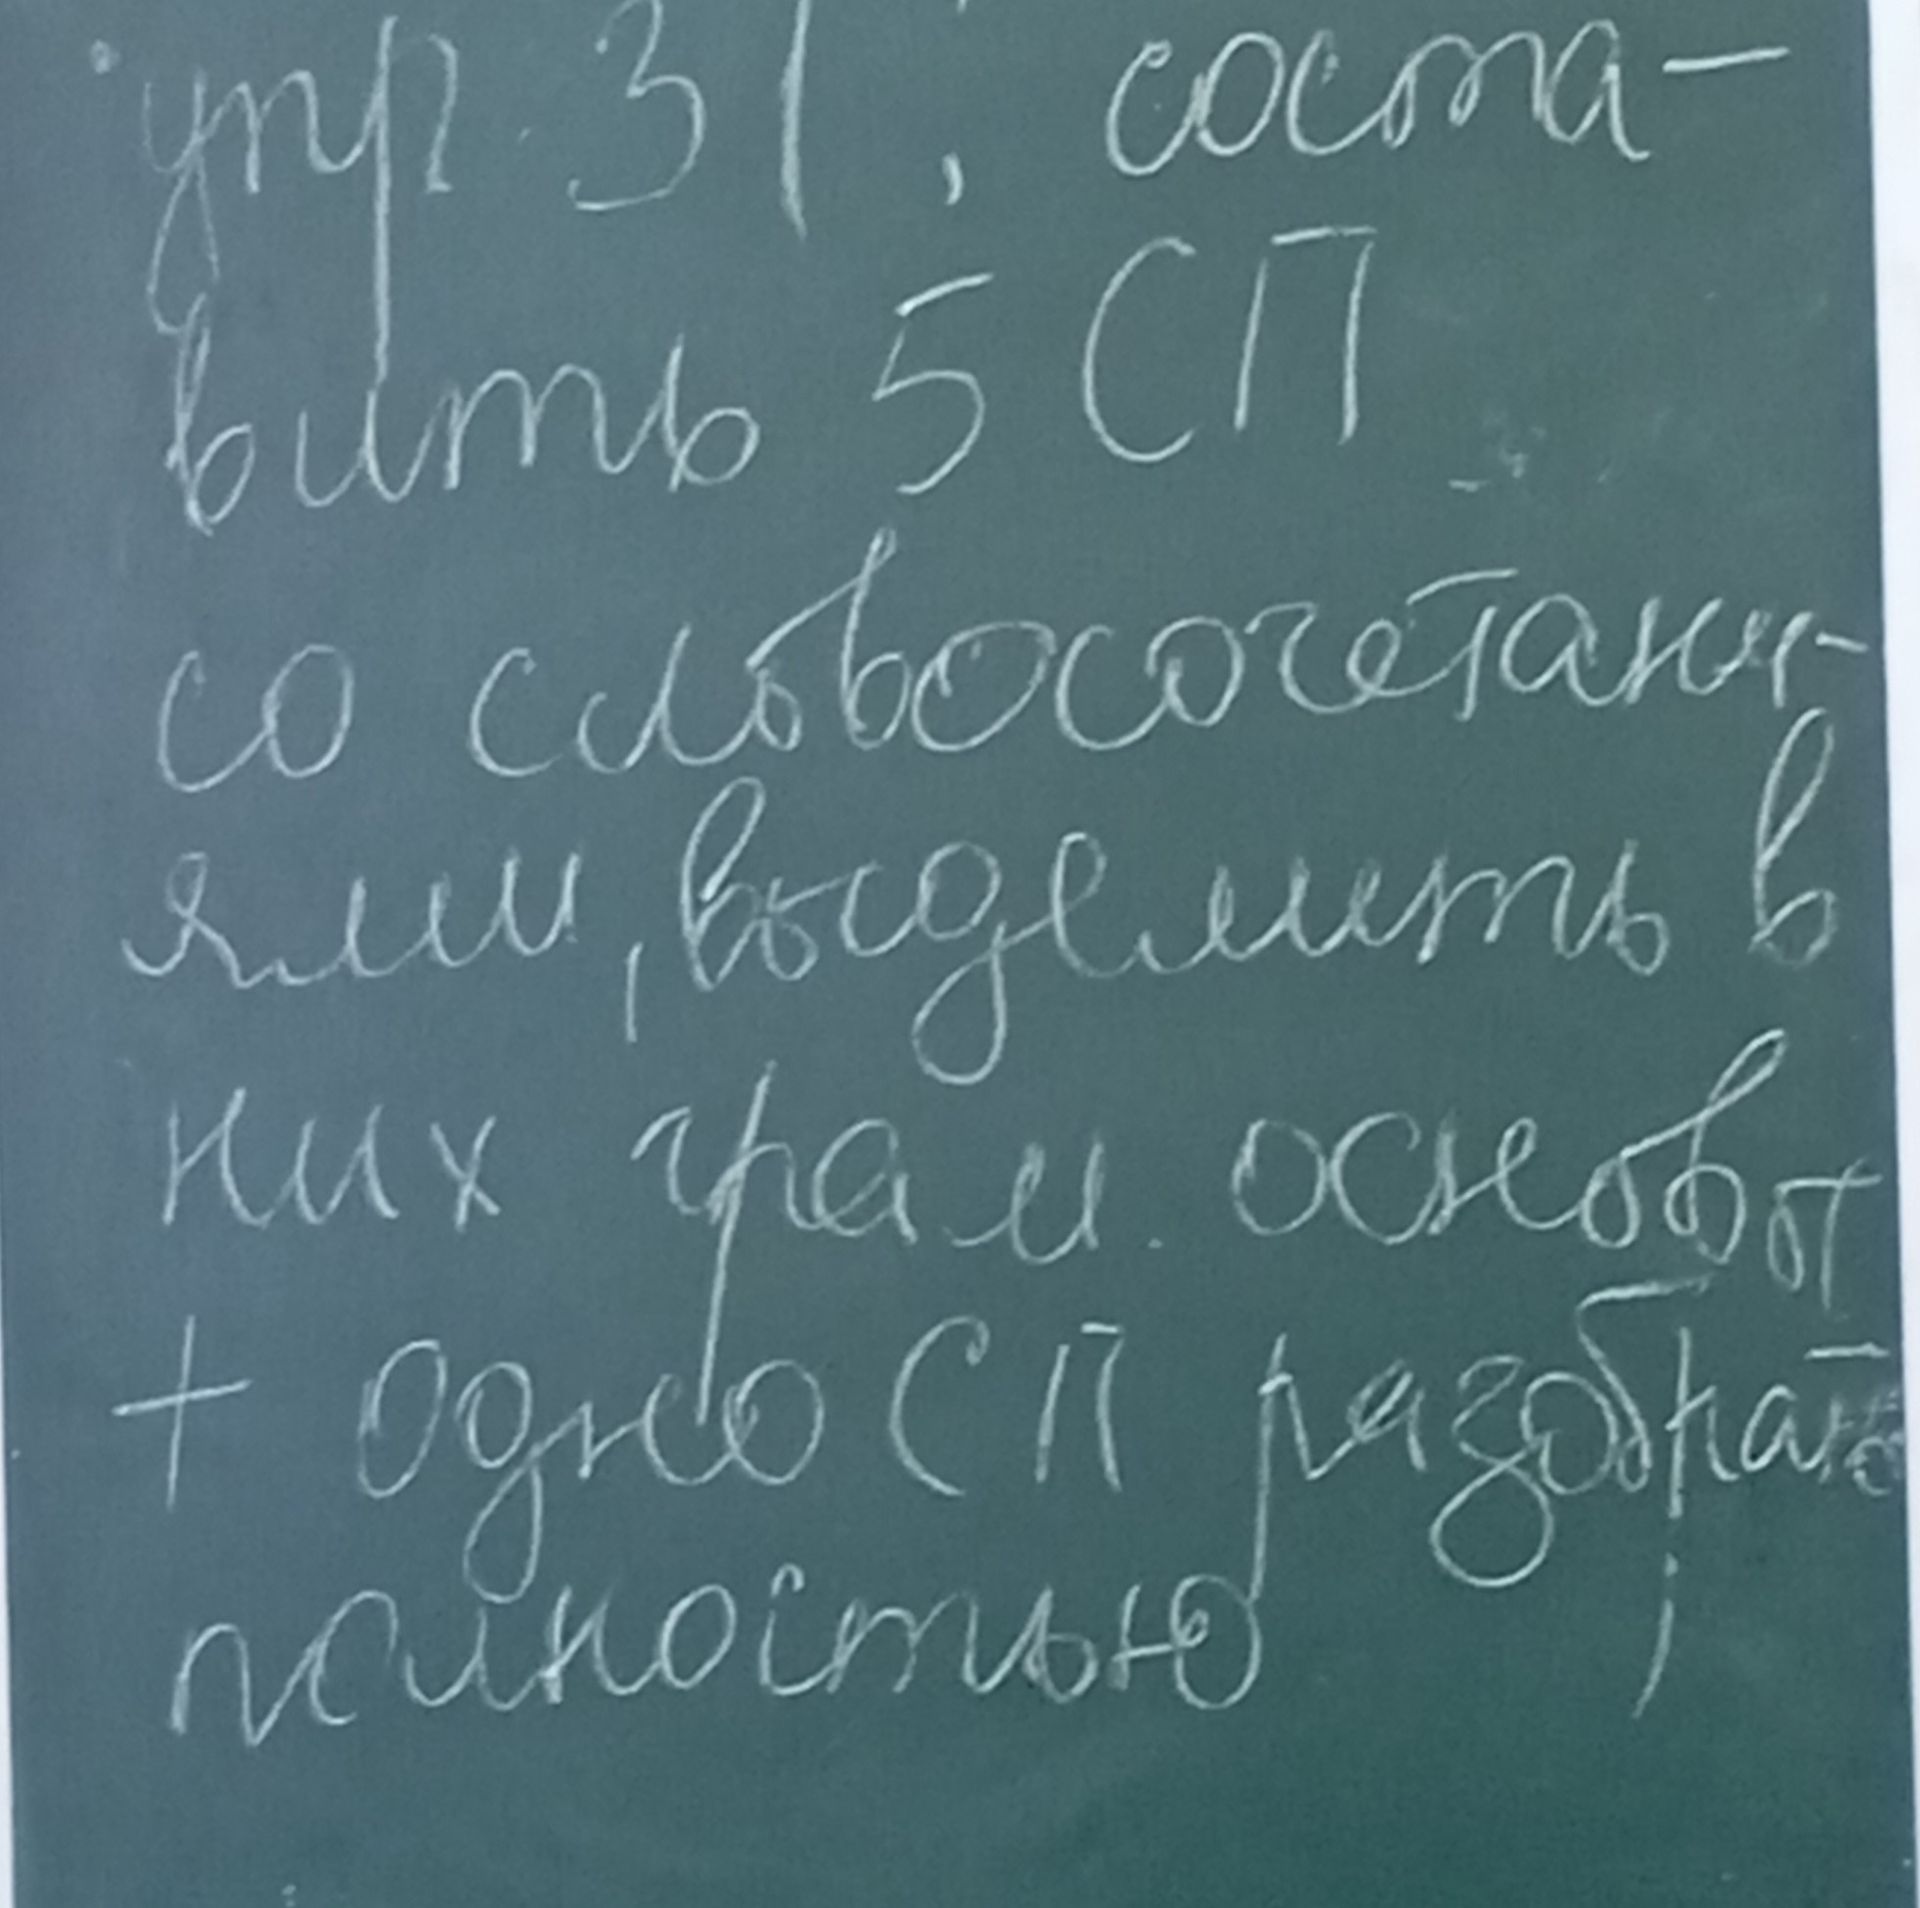 упр. 31, соста-
вить 5 СП
со словосочетани-
ями, выделить в
них грам. основы
+ одно СП разобрать
полностью